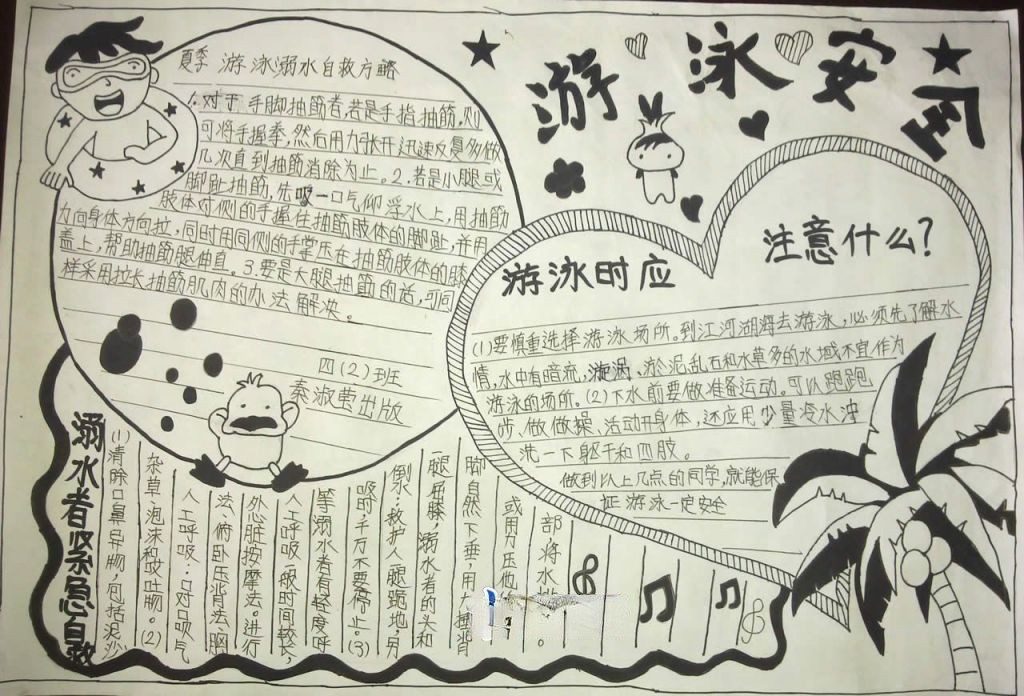 游泳安全
夏季 游泳溺水自救方略
1.对于手脚抽筋者,若是手指抽筋,则
可将手握拳,然后用力张开,迅速反复多做
几次直到抽筋消除为止。2.若是小腿或
脚趾抽筋,先吸一口气仰浮水上,用抽筋
肢体对侧的手握住抽筋肢体的脚趾,并用
力向身体方向拉,同时用同侧的手掌压在抽筋肢体的膝
盖上,帮助抽筋腿伸直。3.要是大腿抽筋的话,可同
样采用拉长抽筋肌肉的办法解决。
四(2)班
秦淑莹出版
游泳时应
注意什么?
(1)要慎重选择游泳场所。到江河湖海去游泳,必须先了解水
情,水中有暗流,漩涡、淤泥,乱石和水草多的水域不宜作为
游泳的场所。(2)下水前要做准备运动。可以跑跑
步、做做操、活动开身体,还应用少量冷水冲
洗一下躯干和四肢。
做到以上几点的同学,就能保
证游泳一定安全
溺水者紧急自救
(1)清除口鼻异物,包括泥沙
杂草、泡沫和呕吐物。(2)
人工呼吸:口对口吹气
法、俯卧压背法、胸
外心脏按摩法。进行
人工呼吸一般时间较长,
等溺水者有轻度呼
吸时千万不要停止。(3)
倒水:救护人一腿跪地,另
一腿屈膝,溺水者的头和
脚自然下垂,用大
或用力压他
部将水